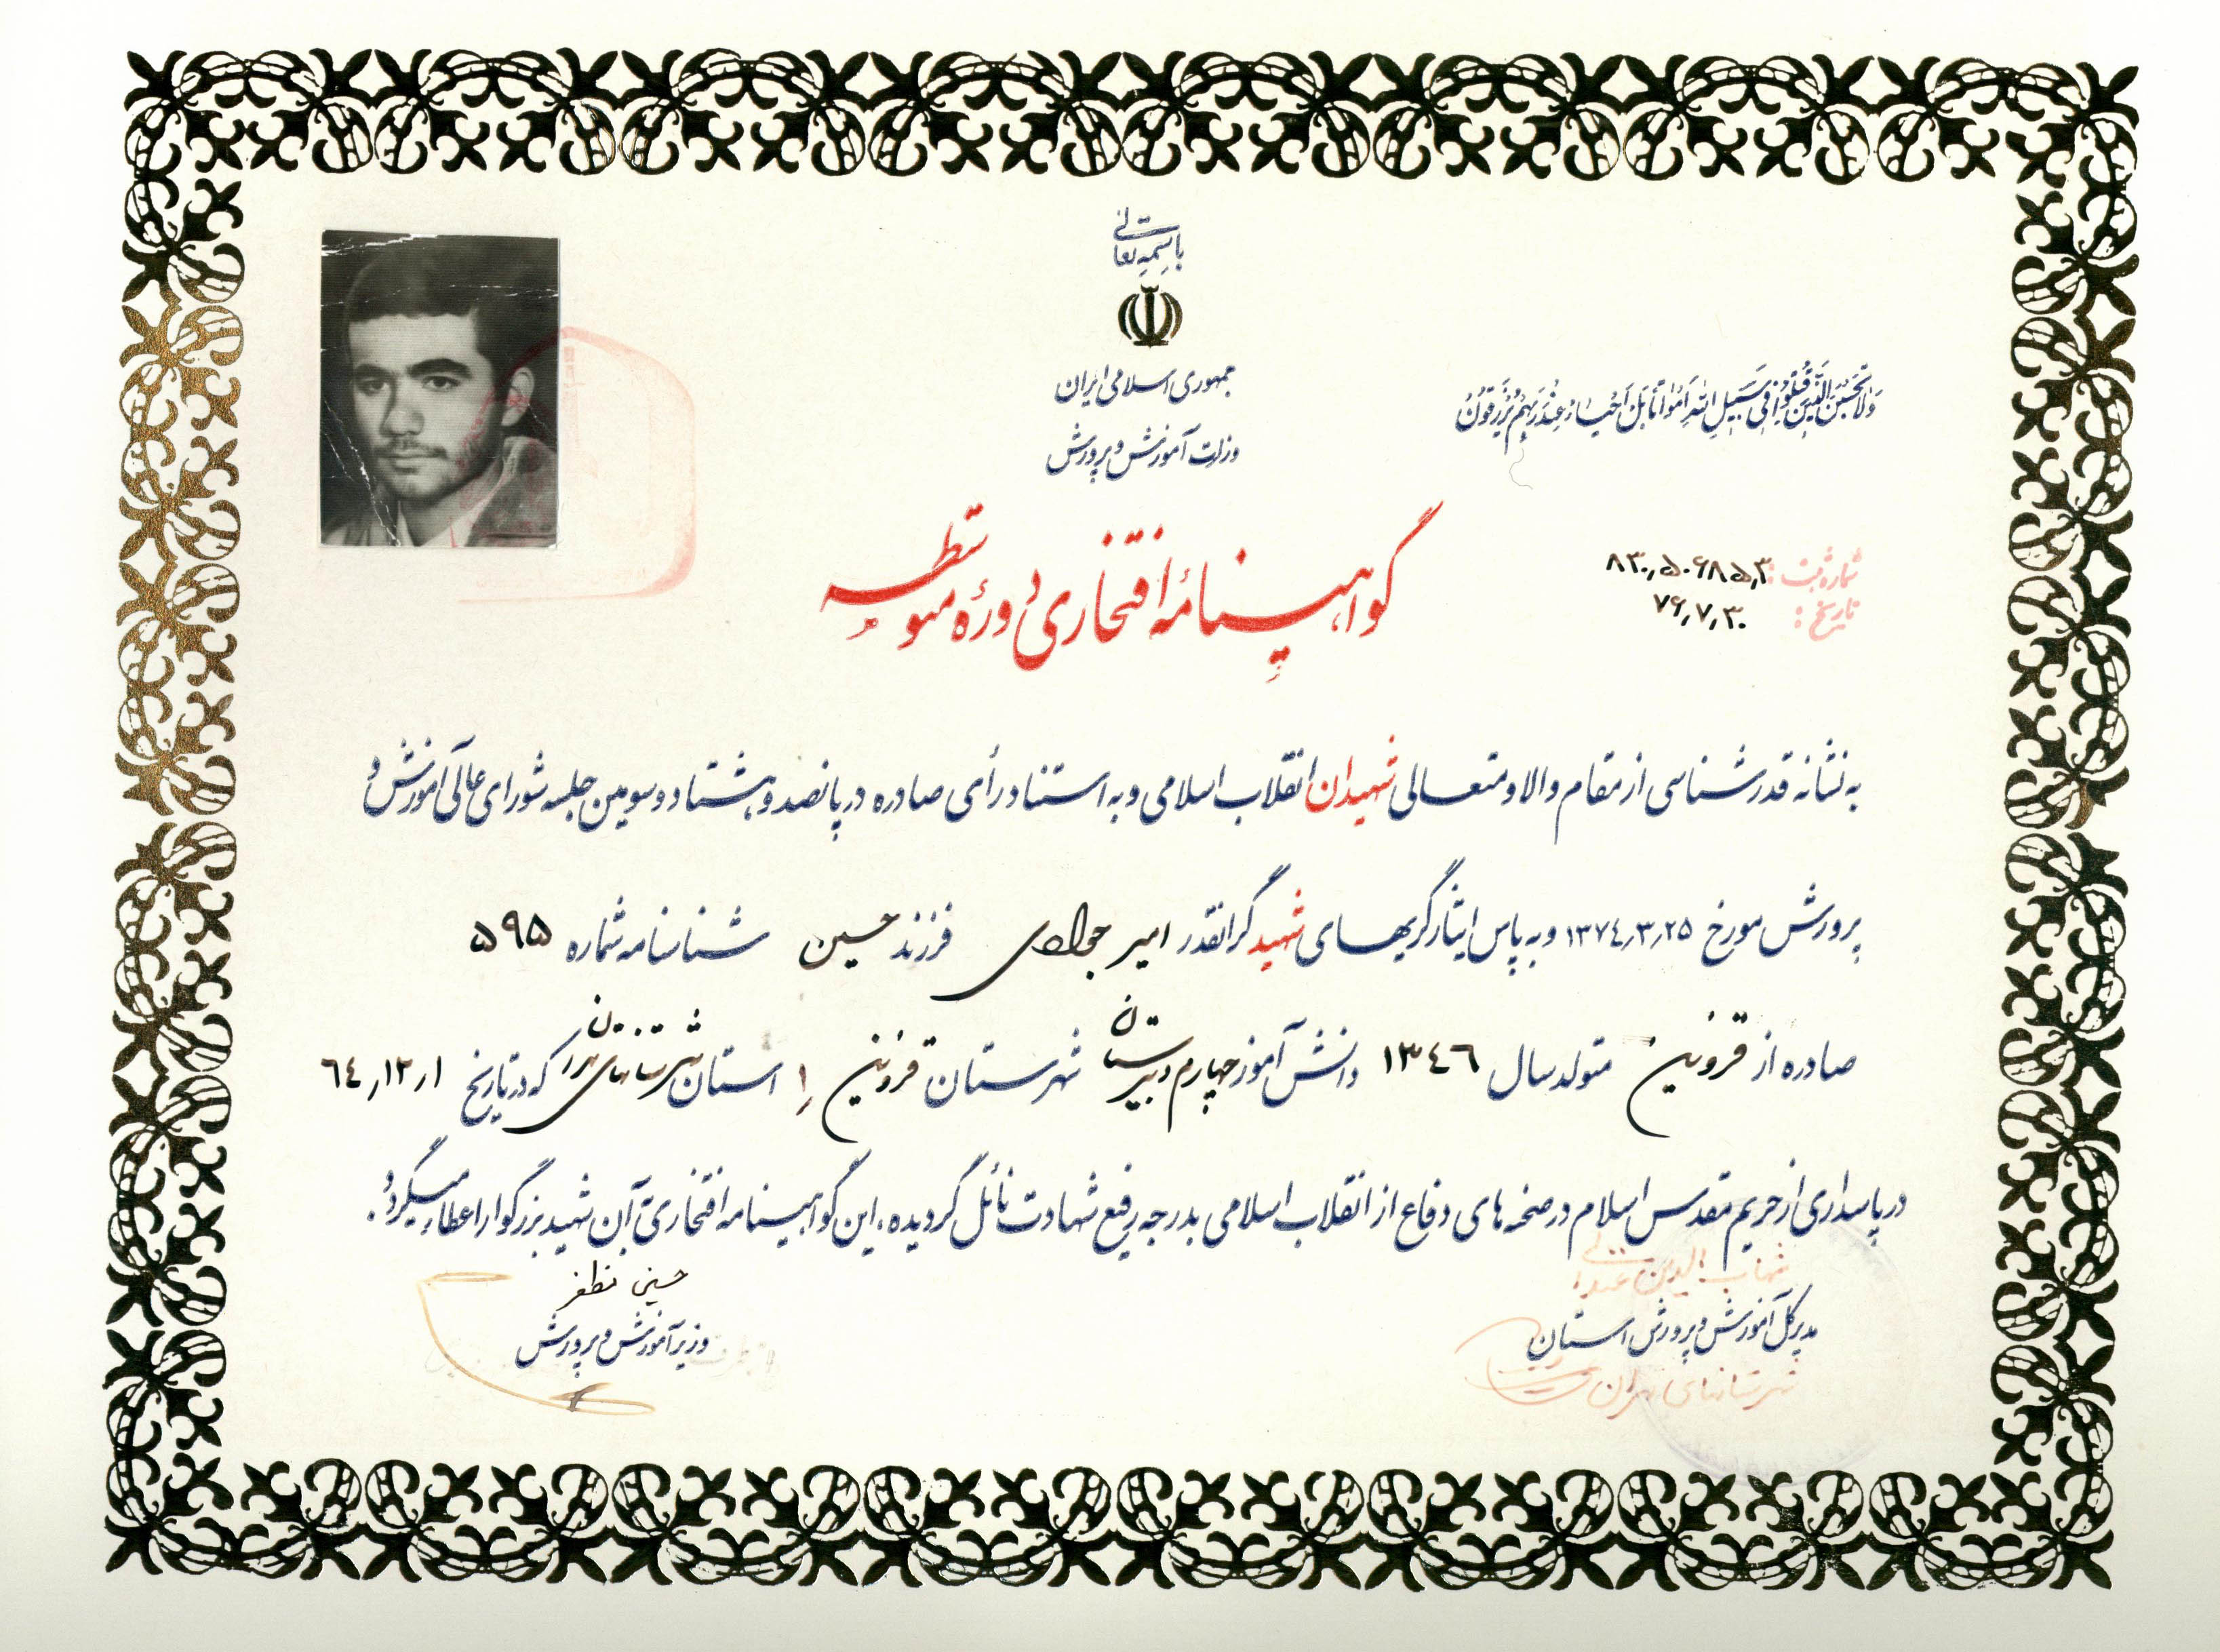 باسمه تعالی
جمهوری اسلامی ایران
وزارت آموزش و پرورش
وَلا تَحْسَبَنَّ الَّذینَ قُتِلُوا فی سَبیلِ اللهِ اَمْواتاً بَلْ اَحْیاءٌ عِنْدَ رَبِّهِمْ یُرْزَقُونَ
گواهینامهٔ افتخاری دورهٔ متوسطه
شماره ثبت: ۸۳۰٫۵۰۶۸۵٫۳
تاریخ: ۷۶٫۷٫۳۰
به نشانه قدرشناسی از مقام والا و متعالی شهیدان انقلاب اسلامی و به استناد رأی صادره در پانصد و هشتاد و سومین جلسه شورای عالی آموزش و
پرورش مورخ ۱۳۷٤٫۳٫۲۵ و به پاس ایثارگریهای شهید گرانقدر امیر جوادی فرزند حسین شناسنامه شماره ۵۹۵
صادره از قزوین متولد سال ۱۳٤٦ دانش آموز چهارم دبیرستان شهرستان قزوین ۱ استان شهرستانهای تهران که در تاریخ ٦٤٫۱۲٫۱
در پاسداری از حریم مقدس اسلام در صحنه های دفاع از انقلاب اسلامی بدرجه رفیع شهادت نائل گردیده، این گواهینامه افتخاری بآن شهید بزرگوار اعطاء میگردد.
شهاب الدین
مدیرکل آموزش و پرورش استان
شهرستانهای تهران
حسین مظفر
وزیر آموزش و پرورش